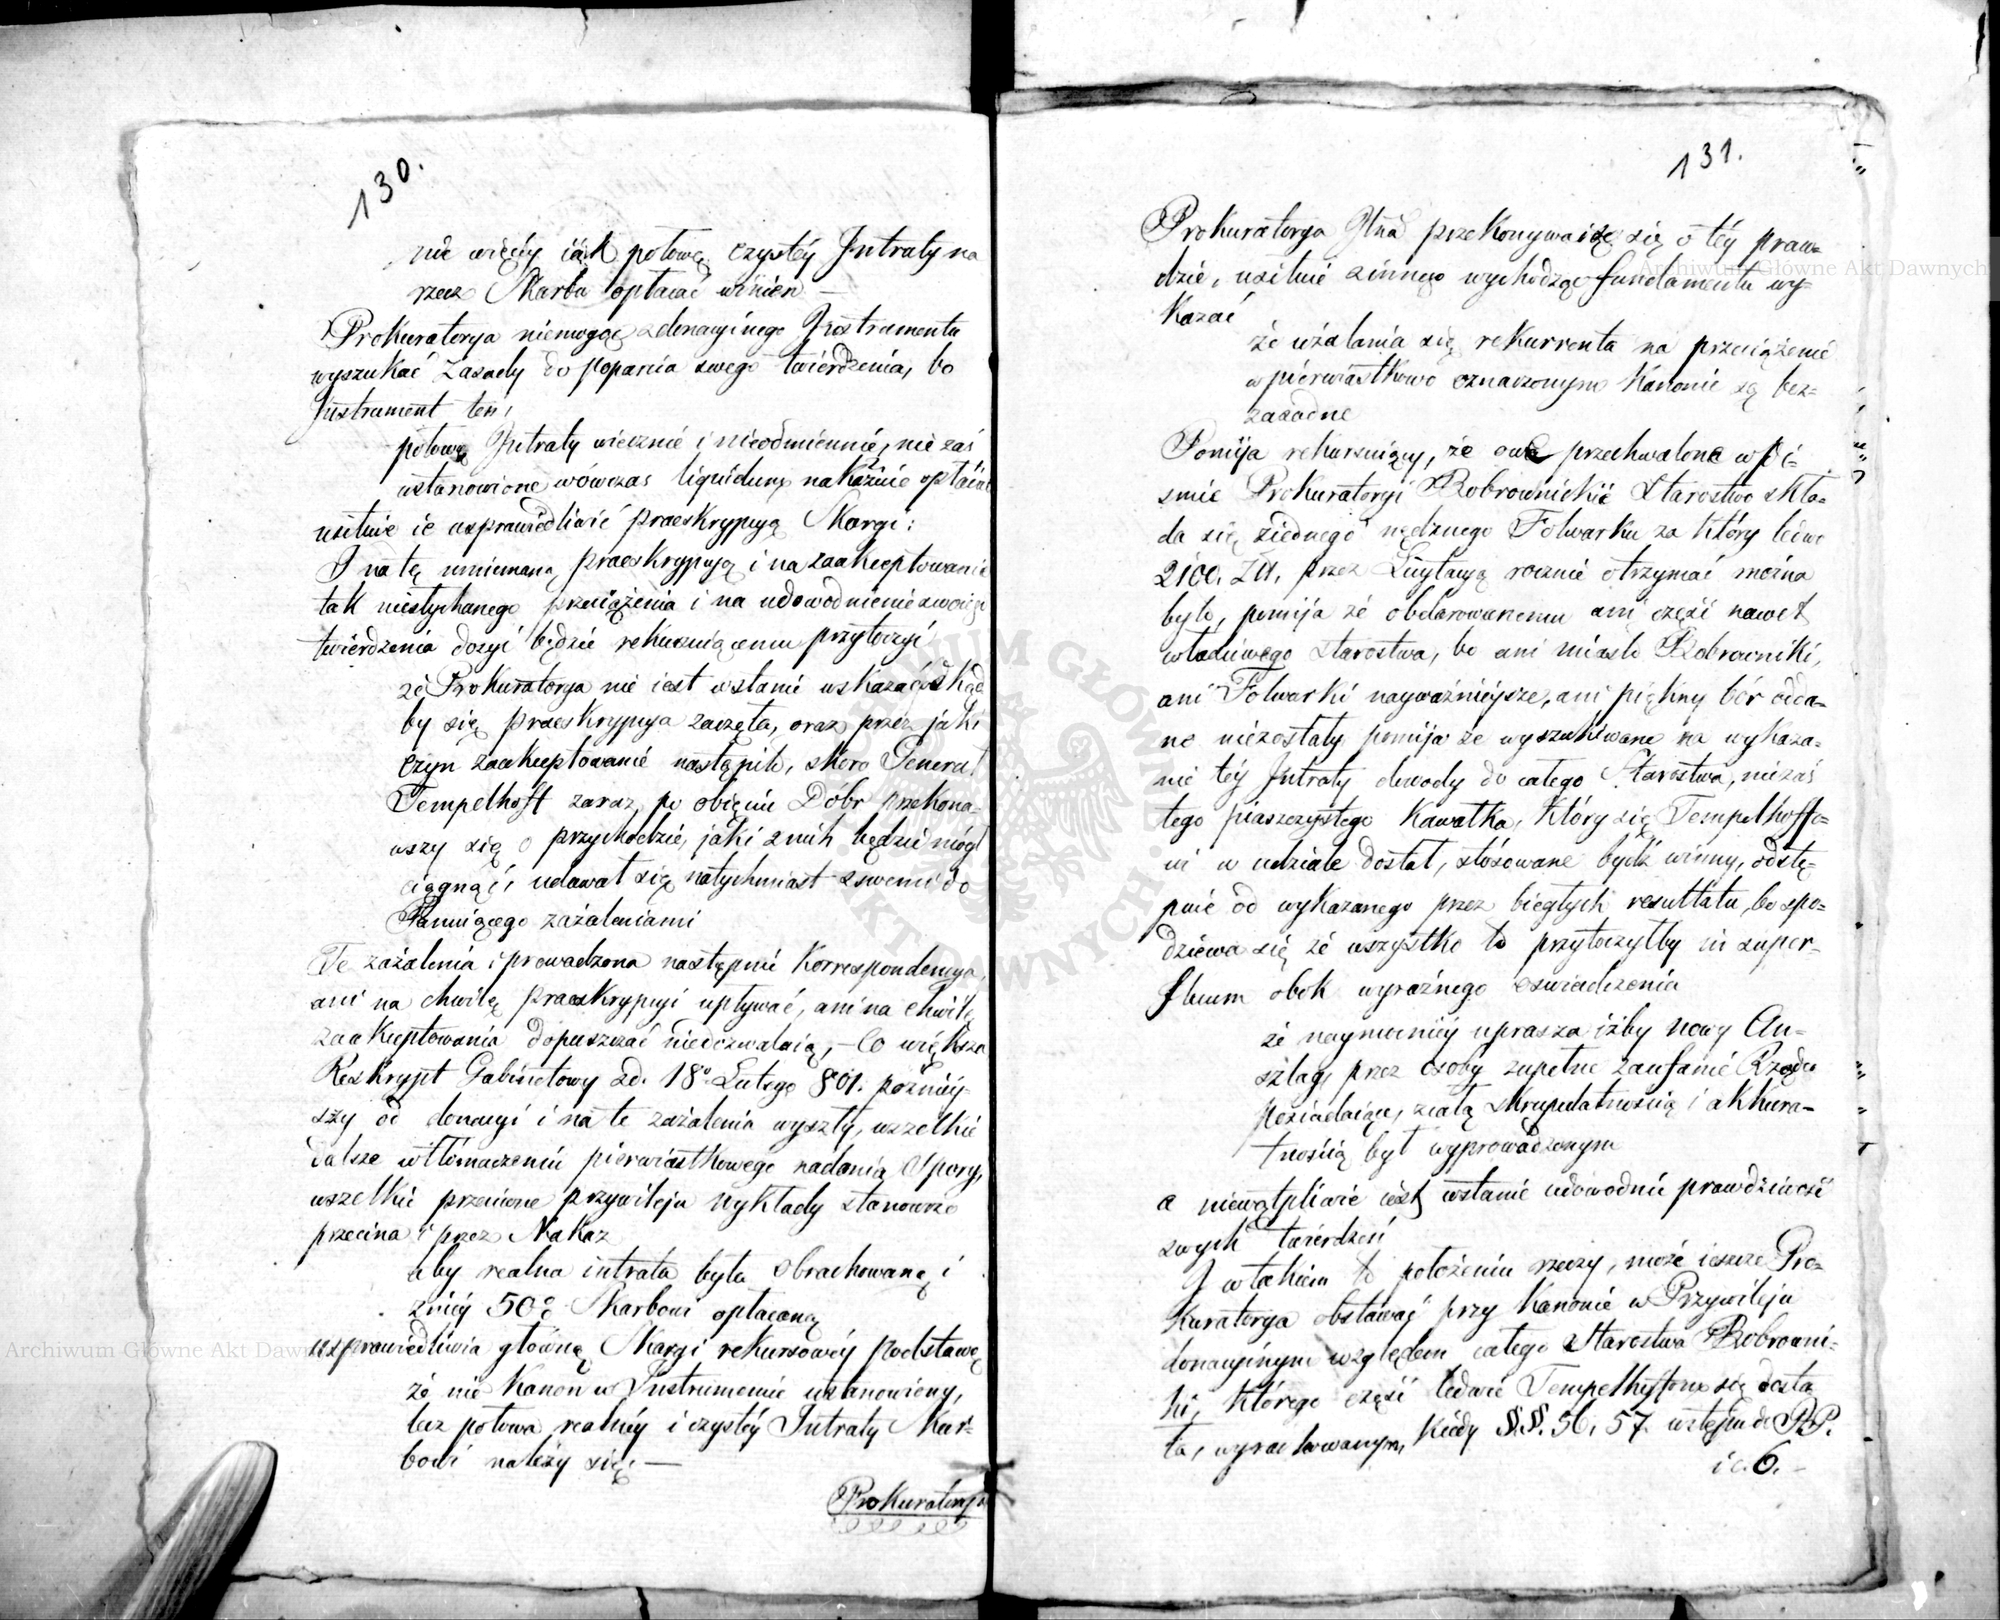 130.
nie więcéy iak połowę czystéy Intraty na
rzecz Skarbu opłacać winien —
Prokuratorya niemogąc z donacyinego Instrumentu
wyszukać Zasady do poparcia swego twierdzenia, bo
Instrument ten,
połowę Intraty wiecznie i nieodmiennie, nie zaś
ustanowione wówczas liquidum nakaźnie opłacać
usiłuie ie usprawiedliwić praeskrypcyą Skargi:
I na tę mniemaną praeskrypcyą i na zaakceptowanie
tak niesłychanego przeciążenia i na udowodnienie swoiego
twierdzenia dosyć będzie rekuruiącemu przytoczyć
że Prokuratorya nie iest w stanie wskazać skąd
by się praeskrypcya zaczęła, oraz przez jaki
czyn zaakceptowanie nastąpiło, skoro Generał
Tempelhoff zaraz po obięciu Dobr przekona-
wszy się o przychodzie, jaki z nich będzie mógł
ciągnąć, udawał się natychmiast z swemi do
Panuiącego zażaleniami
Te zażalenia i prowadzona następnie Korrespondencya,
ani na chwilę praeskrypcyi upływać, ani na chwilę
zaakceptowania dopuszczać niedozwalaią, – Co większa
Reskrypt Gabinetowy z d. 18o Lutego 801. późniéy-
szy od donacyi i na te zażalenia wyszły, wszelkie
dalsze w tłómaczeniu pierwiastkowego nadania Spory,
wszelkie przeciwne przywileju wykłady stanowczo
przecina i przez Nakaz
aby realna intrata była obrachowaną i
z niéy 50% Skarbowi opłaconą
usprawiedliwia główną Skargi rekursowéy podstawę
że nie Kanon w Instrumencie ustanowiony,
lecz połowa realnéy i czystéy Intraty Skar-
bowi należy się. —
Prokuratorya
131.
Prokuratorya Glna przekonywaiąc się o téy praw-
dzie, usiłuie z innego wychodząc fundamentu wy-
kazać
że użalania się rekurrenta na przeciążenie
w pierwiastkowo oznaczonym Kanonie są bez-
zasadne
Pomija rekuruiący, że owe przechwalone w pi-
smie Prokuratoryi Bobrownickie Starostwo skła-
da się z iednego nędznego Folwarku za który ledwo
2100. Zł. przez Licytacyą rocznie otrzymać można
było, pomija że obdarowanemu ani części nawet
właściwego starostwa, bo ani miasto Bobrowniki,
ani Folwarki nayważnieysze, ani piękny bór odda-
ne niezostały pomija że wyszukiwane na wykaza-
nie téy Intraty dowody do całego Starostwa, nie zaś
tego piaszczystego Kawałka, który się Tempelhoffo-
wi w udziale dostał, stósowane bydź winny, odstę-
puie od wykazanego przez biegłych resultatu, bo spo-
dziewa się że wszystko to przytoczyłby in super-
fluum obok wyraźnego oświadczenia
że naymocniéy uprasza iżby nowy An-
szlag, przez osoby zupełne zaufanie Rządu
posiadaiące, z całą skrupulatnością i akkura-
tnością był wyprowadzonym
a niewątpliwie iest w stanie udowodnić prawdziwość
swych twierdzeń
I w takiem to położeniu rzeczy, może ieszcze Pro-
kuratorya obstawać przy Kanonie w Przywileju
donacyinym względem całego Starostwa Bobrowni-
ki, którego część ledwie Tempelhoffowi się dosta
ła, wyrachowanym, kiedy §.§. 56, 57. wstępu do P.P.
i c. 6. —